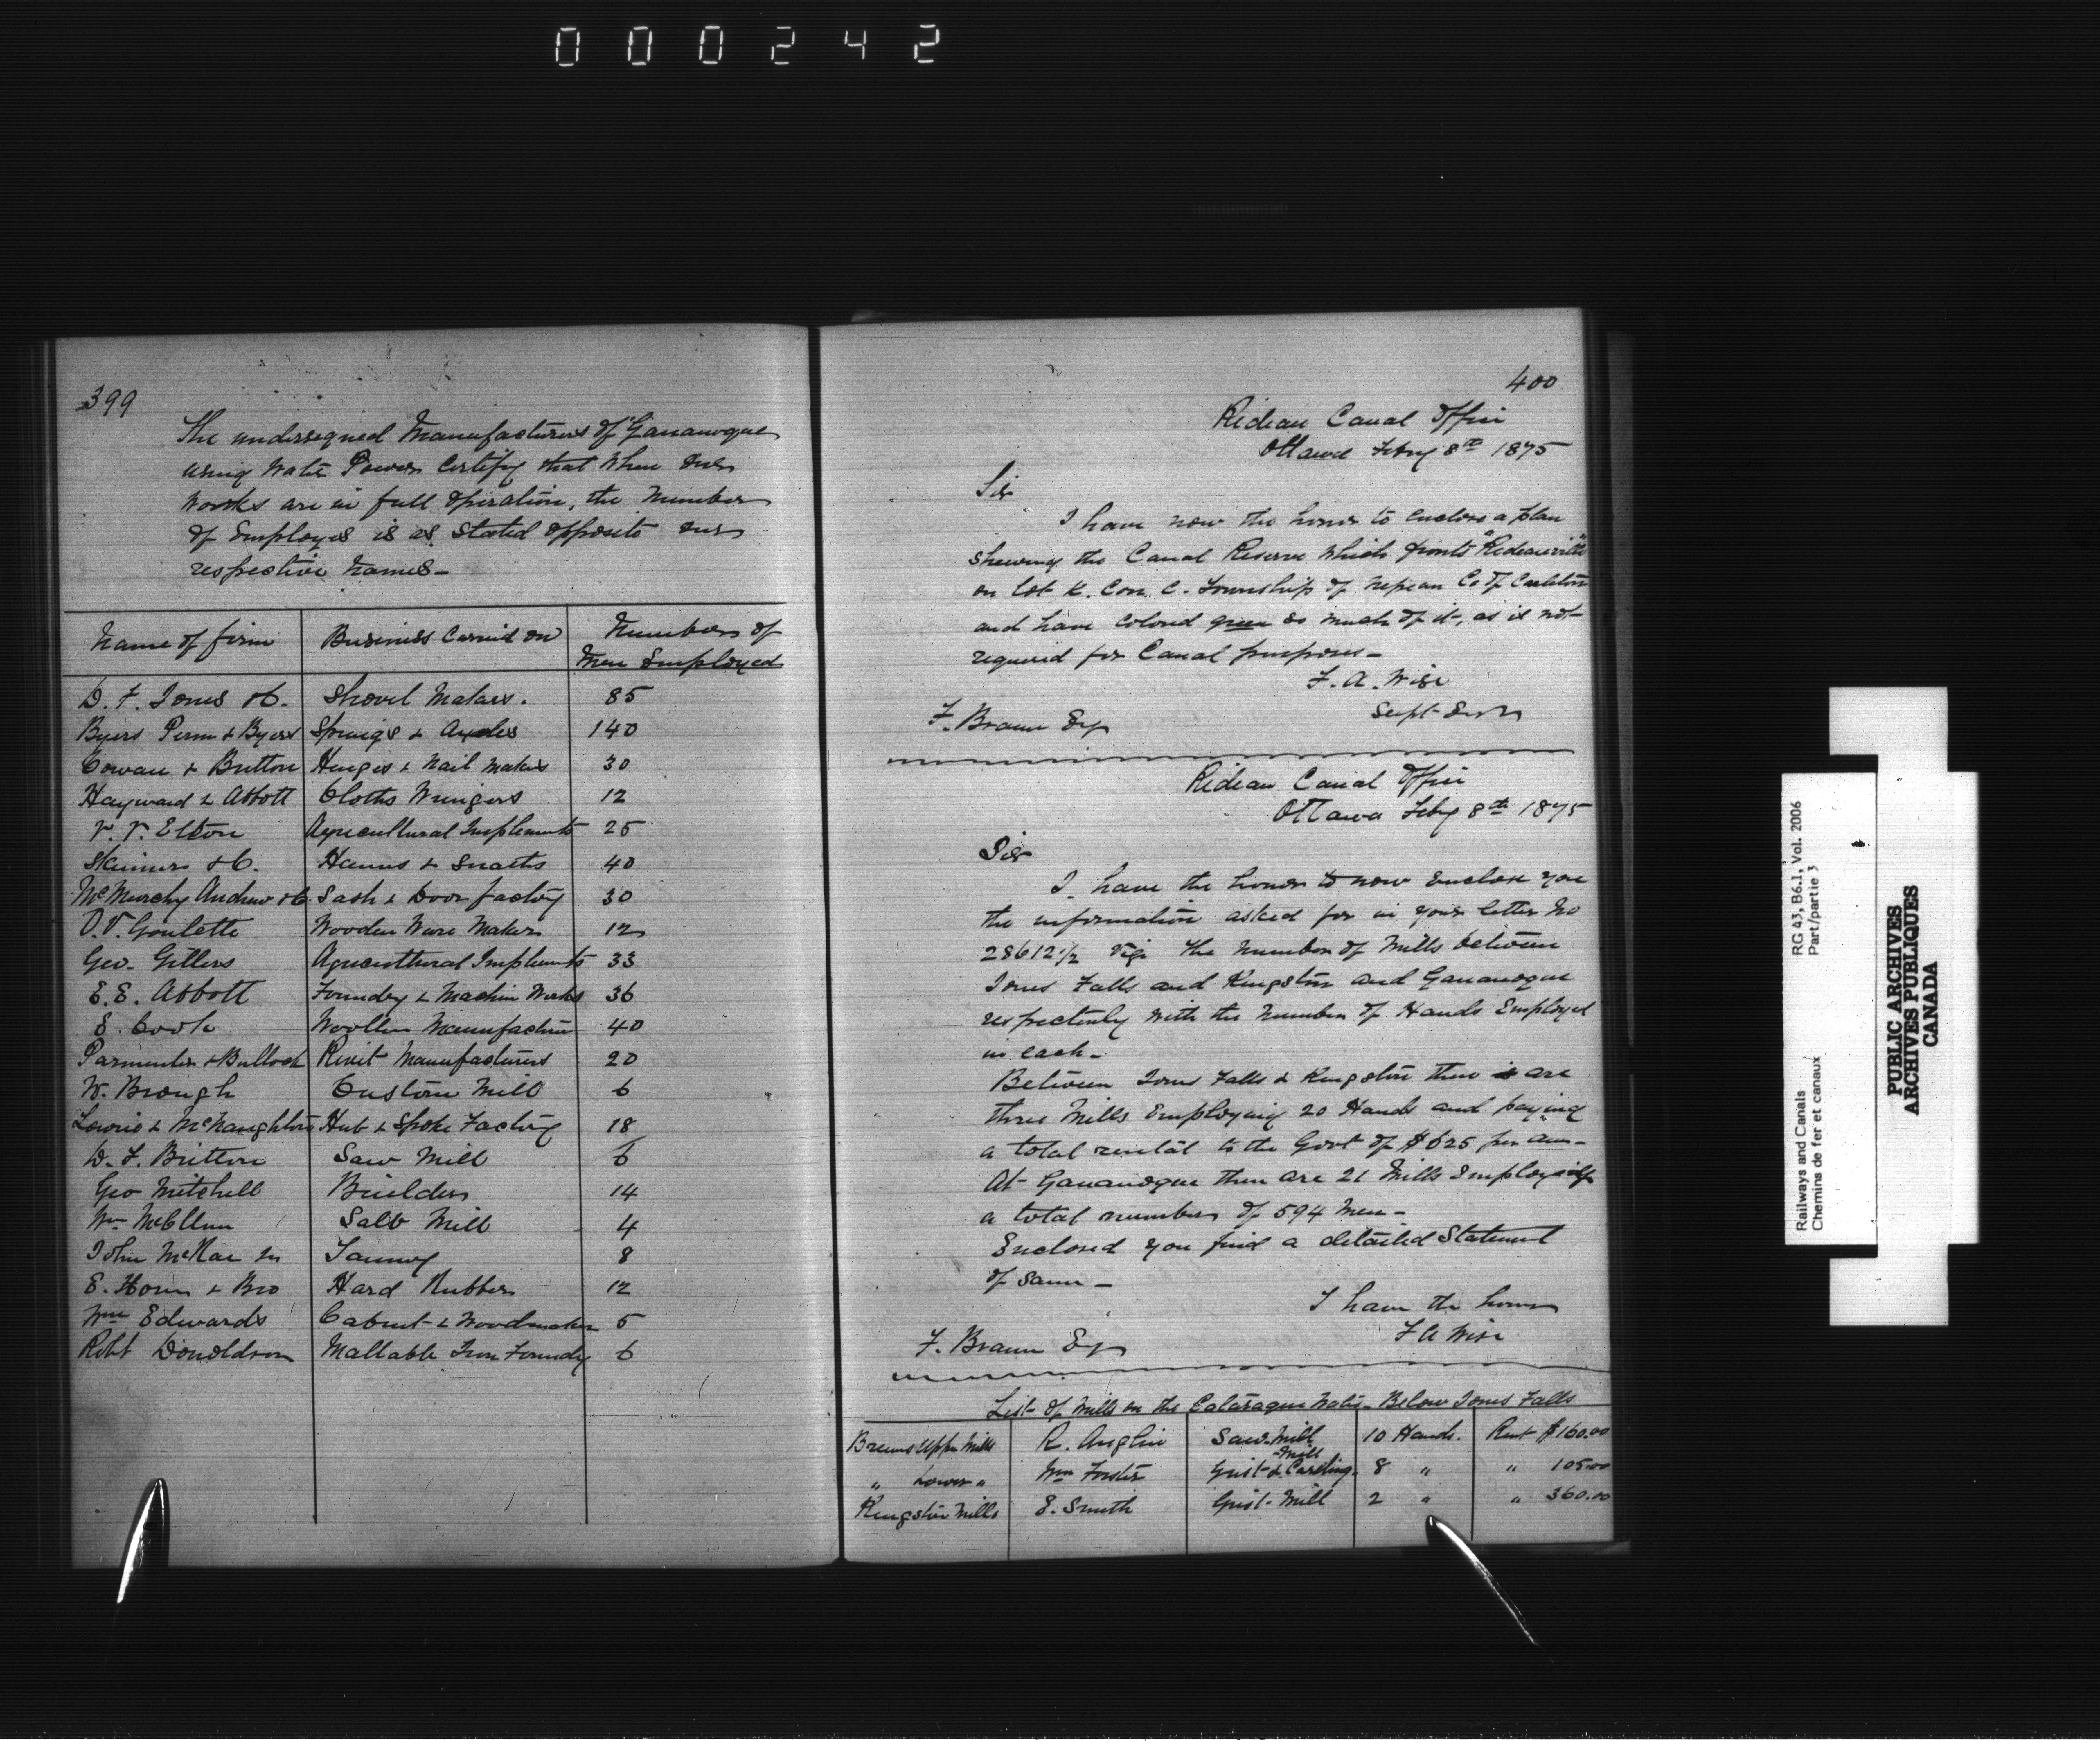 000242
399
The undersigned Manufacturers of Gananoque
using Water Power Certify that when our
Works are in full operation, the Number
of Employes is as stated opposite our
respective names-
Name of firm | Business Carried on | Number of Men Employed
D. F. Jones & Co. | Shovel Makers. | 85
Byers Penn & Byers | Springs & Axles | 140
Cowan & Britton | Hinges & Nail Makers | 30
Hayward & Abbott | Cloths Wringers | 12
Elton | Agricultural Implements | 25
Skinner & Co. | Hames & Snaths | 40
McMurchy Andrew & Co | Sash & Door factory | 30
O.V. Goulette | Wooden Ware Makers | 12
Geo. Gillers | Agricultural Implements | 33
E. E. Abbott | Foundry & Machine Works | 36
E. Cook | Woollen Manufacture | 40
Parmenter & Bullock | Rivit Manufacturers | 20
W. Brough | Custom Mill | 6
Lowrie & McNaughton | Hub & Spoke Factory | 18
D. F. Britton | Saw Mill | 6
Geo Mitchell | Builders | 14
Wm | Salt Mill | 4
John McRae | Tannery | 8
E. Horn & Bro | Hard Rubber | 12
Wm Edwards | Cabinet & Woodmaker | 5
Robt Donaldson | Mallable Iron Foundry | 6
400
Rideau Canal Office
Ottawa Feby 8th 1875
Sir
I have now the honor to enclose a plan
shewing the Canal Reserve which fronts "Rideauville"
on Lot K. Con. C. Township of Nepean Co. of Carleton
and have colored green so much of it, as is not
required for Canal purposes-
F. A. Wise
Supt Engr
F. Braun Esq
Rideau Canal Office
Ottawa Feby 8th 1875
Sir
I have the honor to now Enclose you
the information asked for in your letter No
28612½ viz. the number of Mills between
Jones Falls and Kingston and Gananoque
respectively with the number of Hands Employed
in each-
Between Jones Falls & Kingston there is are
three Mills Employing 20 Hands and paying
a total rental to the Govt of $625 per ann-
At Gananoque there are 21 Mills Employing
a total number of 594 Men-
Enclosed you find a detailed Statement
of same-
I have the honor
F A Wise
F. Braun Esq
List of Mills on the Cataraque Water Below Jones Falls
Brewers Upper Mills | R. Anglin | Saw-Mill | 10 Hands. | Rent $160.00
" Lower " | Wm Forster | Grist-Mill & Carding. | 8 " | " 105.00
Kingston Mills | E. Smith | Grist-Mill | 2 " | " 360.00
RG 43, B6.1, Vol. 2006
Part/partie 3
Railways and Canals
Chemins de fer et canaux
PUBLIC ARCHIVES
ARCHIVES PUBLIQUES
CANADA